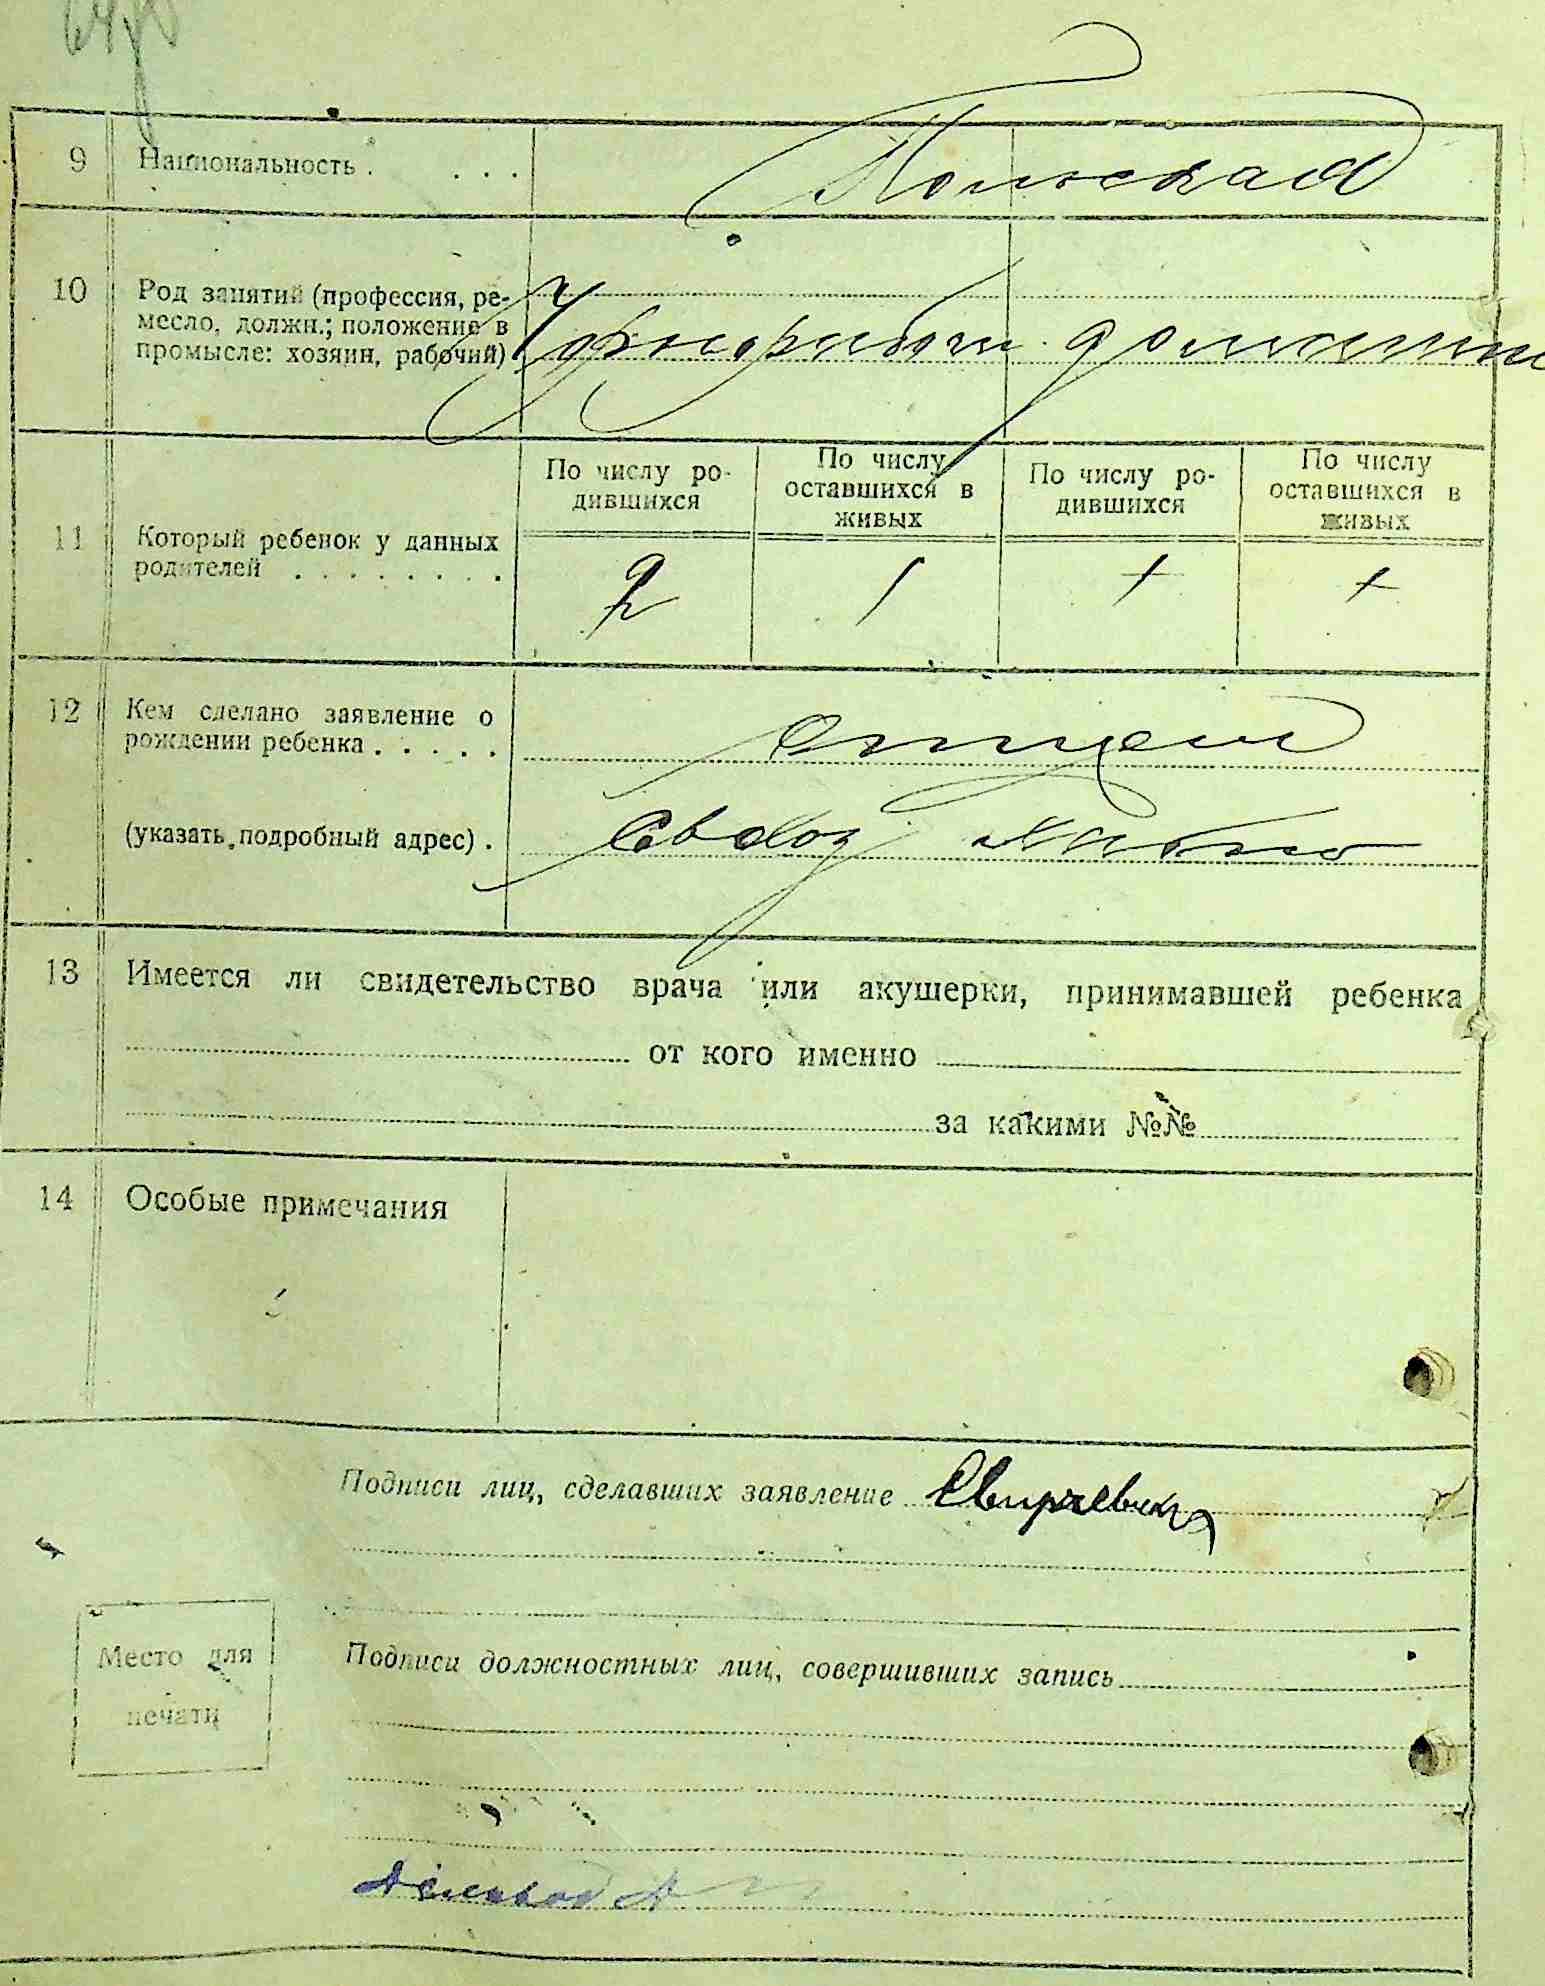 9 Национальность . . . . Польская
10 Род занятий (профессия, ре-
месло, должн.; положение в
промысле: хозяин, рабочий)
Чернорабоч. домашн
По числу ро-
дившихся
По числу
оставшихся в
живых
По числу ро-
дившихся
По числу
оставшихся в
живых
11 Который ребенок у данных
родителей . . . . . . . .
2 1 + +
12 Кем сделано заявление о
рождении ребенка . . . . .
отцем
(указать подробный адрес) . Совхоз
13 Имеется ли свидетельство врача или акушерки, принимавшей ребенка
от кого именно
за какими №№
14 Особые примечания
Подписи лиц, сделавших заявление
Место для
печати
Подписи должностных лиц, совершивших запись